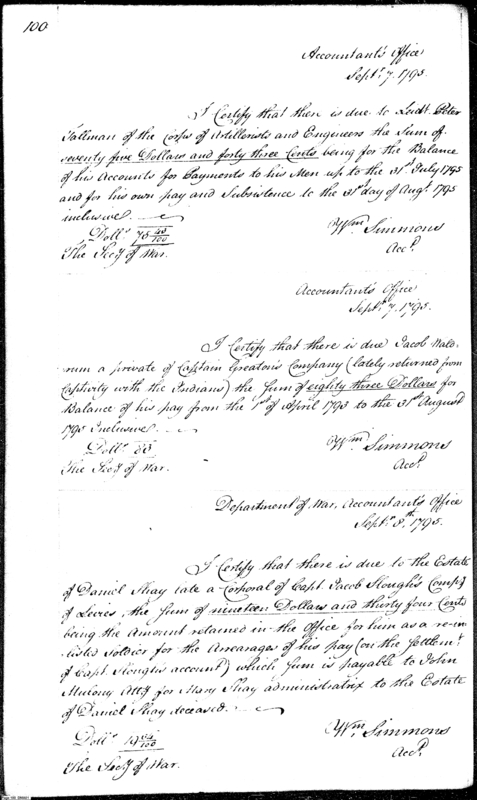 100
Accountant's Office
Septr. 7. 1795.
I Certify that there is due to Lieut. Peter
Tallman of the Corps of Artillerists and Engineers the Sum of
seventy five Dollars and forty three Cents being for the Balance
of his Accounts for Payments to his Men up to the 31st July 1795
and for his own pay and Subsistence to the 31st day of Augt. 1795
inclusive.
Dolls. 75 43/100
The Secy of War.
Wm Simmons
Acct.
Accountant's Office
Septr. 7. 1795.
I Certify that there is due Jacob Wald-
rum a private of Captain Greaton's Company (lately returned from
Captivity with the Indians) the Sum of eighty three Dollars for
Balance of his pay from the 1st of April 1793 to the 31st August
1795 Inclusive.
Dolls. 83
The Secy of War.
Wm Simmons
Acct.
Department of War, Accountant's Office
Septr. 8th. 1795.
I Certify that there is due to the Estate
of Daniel Shay late a Corporal of Capt. Jacob Slough's Compy
of Levies, the Sum of nineteen Dollars and thirty four Cents
being the Amount retained in the Office for him as a re-in-
listed Soldier for the Arrearages of his pay (on the Settlemt.
of Capt. Slough's account) which Sum is payable to John
Mulony Atty for Mary Shay administratrix to the Estate
of Daniel Shay deceased.
Dolls. 19 34/100
The Secy of War.
Wm Simmons
Acct.